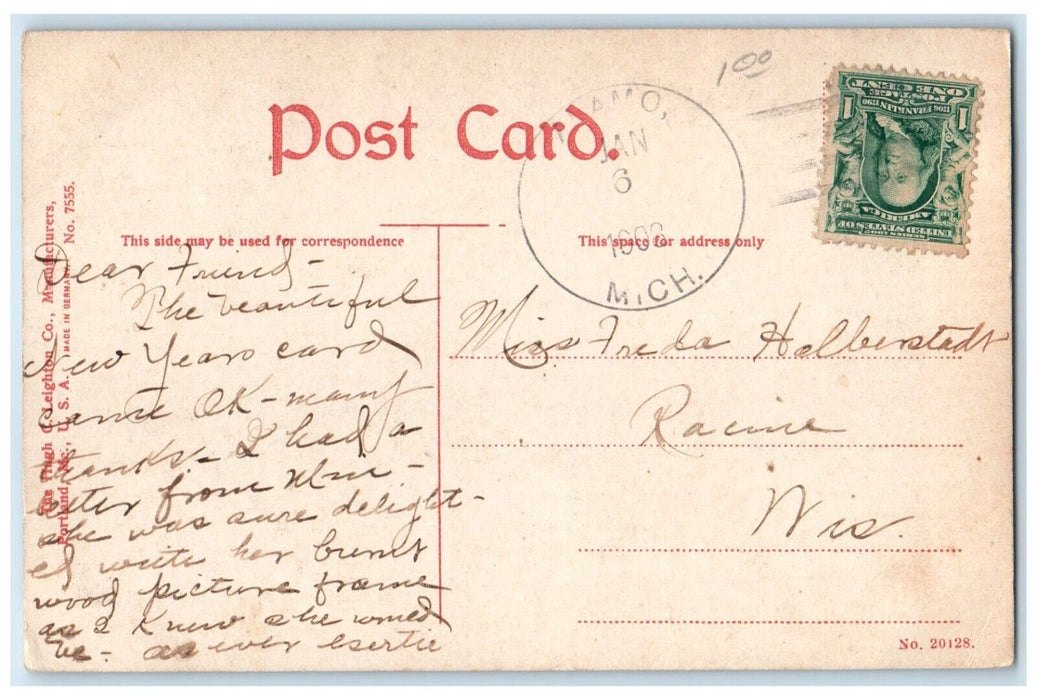 1.00
Post Card.
AMO,
JAN
6
MICH.
SERIES 1902
UNITED STATES OF
AMERICA
1706 FRANKLIN 1790
POSTAGE
ONE CENT
1 1
This side may be used for correspondence
This space for address only
The Hugh C. Leighton Co., Manufacturers,
Portland, Me., U. S. A. MADE IN GERMANY. No. 7555.
Dear Friend -
The beautiful
New Years card
came OK - many
thanks. - I had a
letter from Min -
she was sure delight-
ed with her burnt
wood picture frame
as I knew she would
be - as ever
Miss Freda Halberstadt
Racine
Wis.
No. 20128.